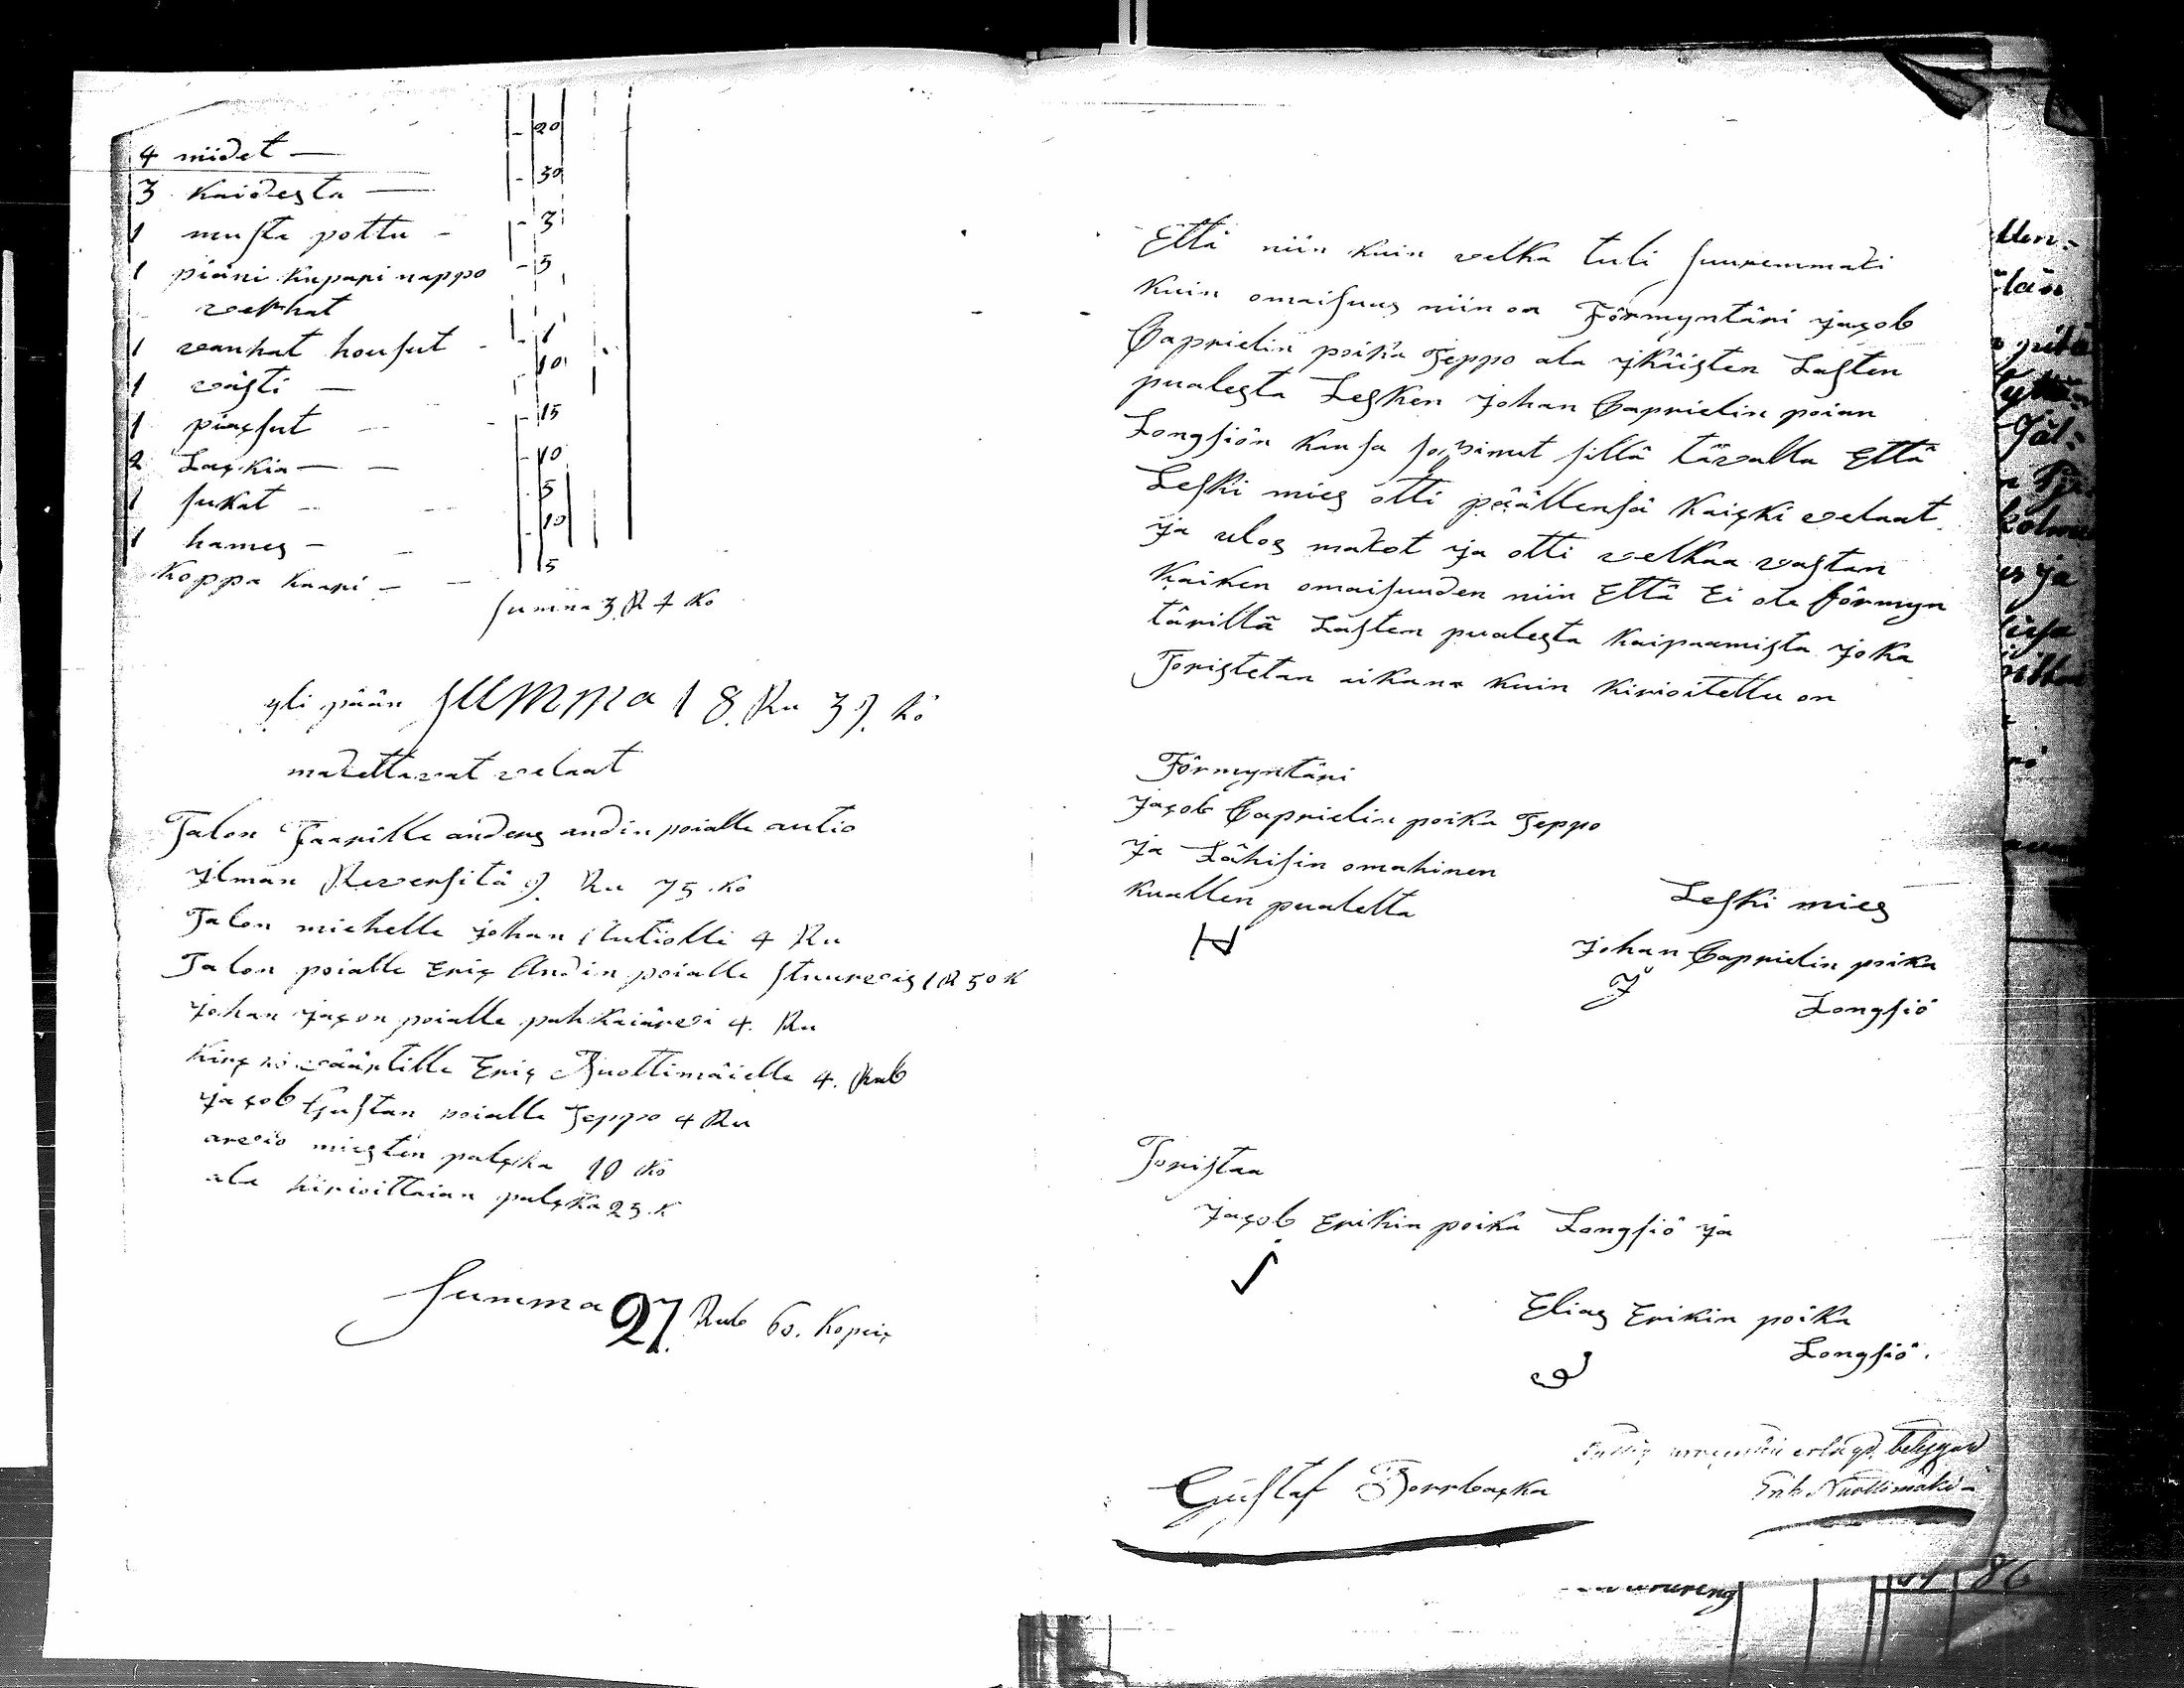 4 niidet — - 20
3 Kaidesta — - 30
1 musta pottu - - 3
1 piäni Kupari nappo - 5
verhat
1 vanhat housut - - 1
1 västi — 10
1 piexsut - 15
2 Lackia — - 10
1 sukat - 5
1 hames - - 10
Koppa kaapi - 5
summa 3 R 7 Ko
yli pään summa 18. Ru 39. kö
maxettavat velaat
Talon Faarille anders andin poialle autio
ilman Reversitä 9. Ru 75. Kö
Talon miehelle johan Autiolli 4 Ru
Talon poialle Eric Andin poialle 1 R 50 K
johan jacon poialle puhkaiärvi 4. Ru
Eric Nuottimäielle 4. Rub
jacob Gustan poialle Seppo 4 Ru
arvio miesten palcka 10 Kö
ala kirioittaian palcka 25. K
Summa 27. Rub 60. Kopeic
Että niin kuin velka tuli suuremmaxi
Kuin omaisuus niin on Förmyntäri jacob
Caprielin poika Seppo ala jkäisten Lasten
pualesta Lesken johan Caprielin poian
Longsiön kansa sopinut sillä tävalla Että
Leski mies otti päällensä Kaicki velaat
ja ulos maxot ja otti velkaa vastan
Kaiken omaisuuden niin Että Ei ole förmyn
tärillä Lasten pualesta Kaipaamista joka
Toristetan aikana kuin Kirioitettu on
Förmyntäri
jacob Caprielin poika Seppo
ja Lähisin omahinen
kuallen pualelta
Leski mies
johan Caprielin poika
Longsiö
Toristaa
jacob Erikin poika Longsiö ja
Elias Erikin poika
Longsiö.
erlagd. betygar
Erik Nuottimäki
Gustaf Borrbacka
86